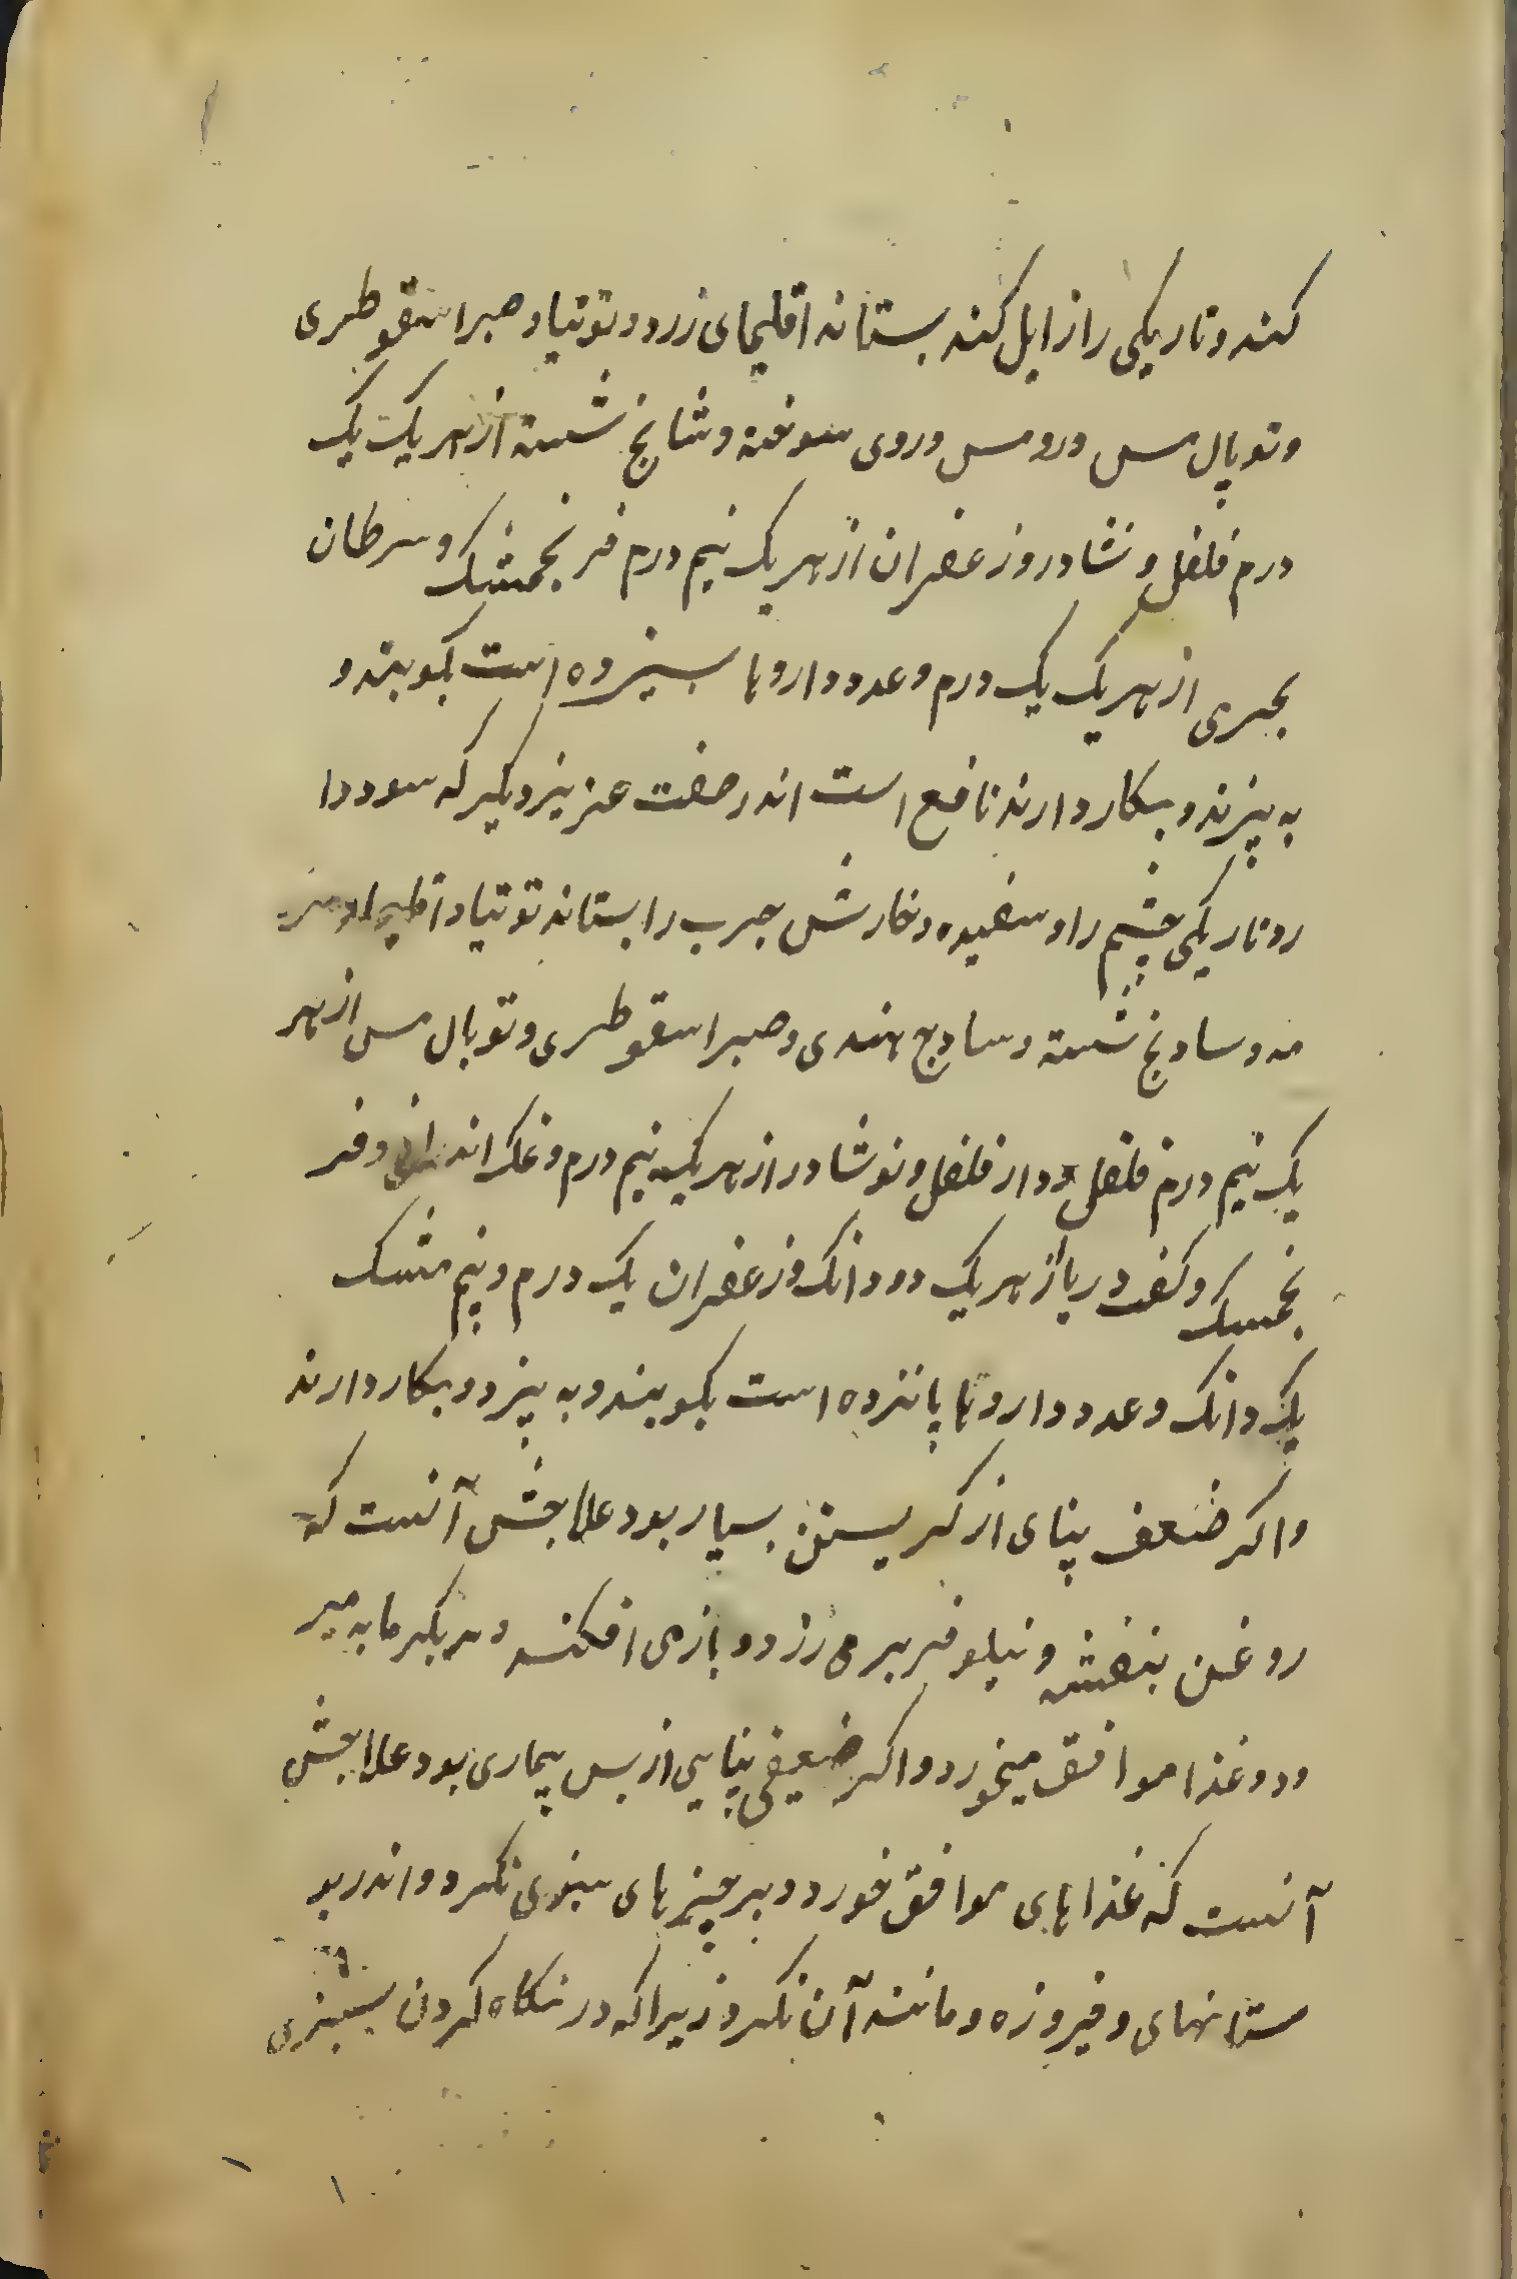 کند و تاریکی را زایل کند بستانه اقلیمای زرد و توتیا و صبر اسقوطری
و توپال مس و رومس و روی سوخته و شانج شسته از هر یک یک
درم فلفل و نشادر و زعفران از هر یک نیم درم فرنجمشک و سرطان
بحری از هر یک یک درم و عدد داروها سیزده است بکوبند و
به پیزند و بکار دارند نافع است اندر صفت عزیز دیگر که سود دا
رد تاریکی چشم را و سفیده و خارش جرب را بستانه توتیا و اقلیما
و سادنج شسته و سادج هندی و صبر اسقوطری و توبال مس از هر
یک نیم درم فلفل و دار فلفل و نوشادر از هر یک نیم درم و نمک اندرانی و فر
نجمسک و کف دریا از هر یک دو دانک و زعفران یک درم و نیم مشک
یک دانک و عدد داروها پانزده است بکوبند و به پیزد و بکار دارند
و اکر ضعف بینای از کریستن بسیار بود علاجش آنست که
روغن بنفشه و نیلوفر بر می رزد و بازمی افکند و بکرمابه میر
ود و غذا موافق میخورد و اکر ضعیفی بینایی از پس بیماری بود علاجش
آنست که غذاهای موافق خورد و بر چیزهای سبزی نکرد و اندر بو
ستانهای و فیروزه و مانند آن نکرد زیرا که در نکاه کردن بسبزی